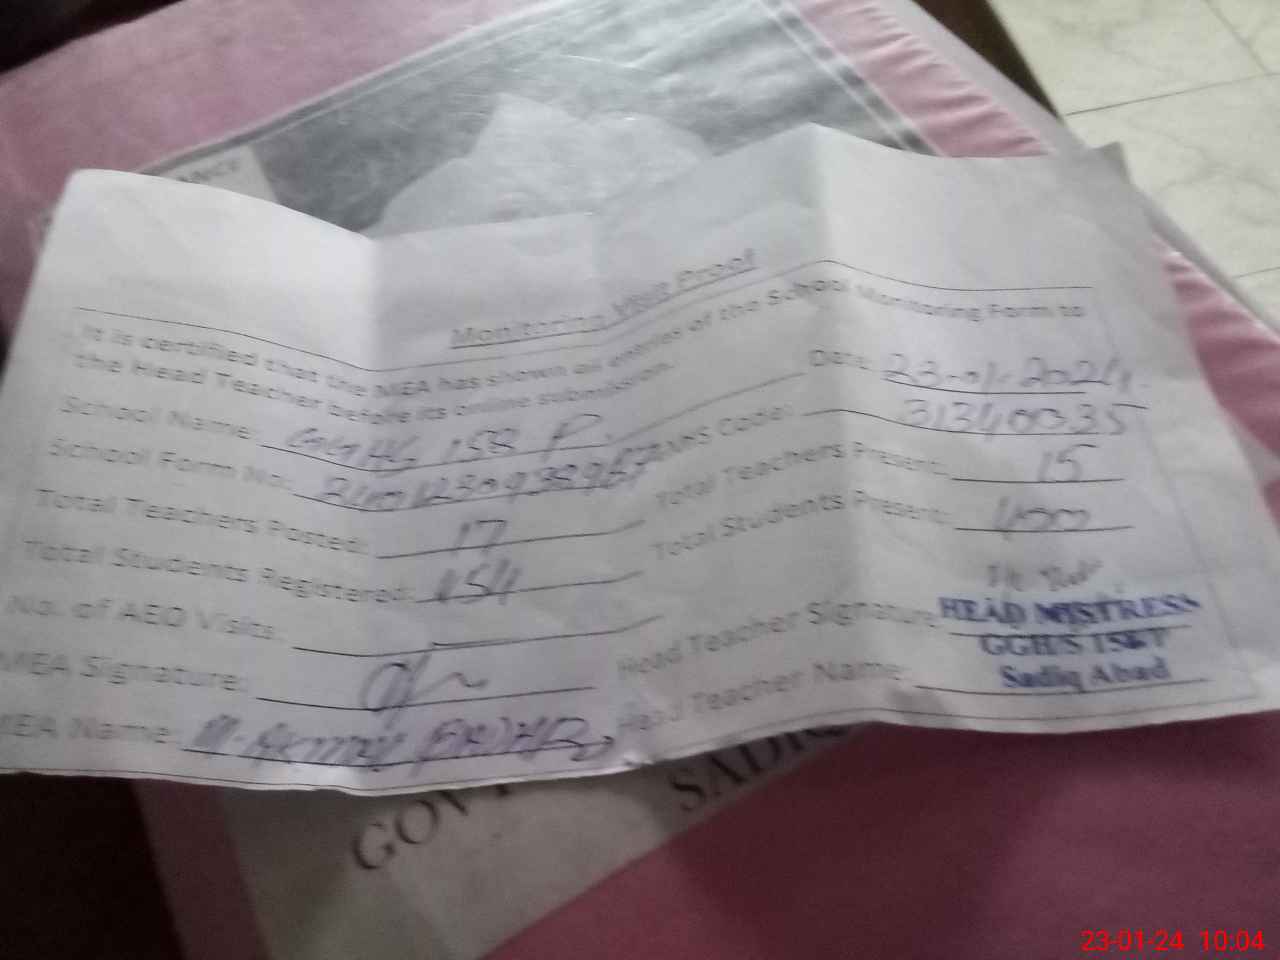 Monitoring Visit Proof
It is certified that the MEA has shown all entries of the School Monitoring Form to
the Head Teacher before its online submission.
Date: 23-01-2024
School Name: 158 P.
EMIS Code: 31340035
School Form No:
Total Teachers Present: 15
Total Teachers Posted: 17
Total Students Present: 400
Total Students Registered: 454
No. of AEO Visits:
Head Teacher Signature:
HEAD MISTRESS
GGH/S 158/P
Sadiq Abad
MEA Signature:
Head Teacher Name:
MEA Name: M.
GOVT
SADIQ
23-01-24 10:04